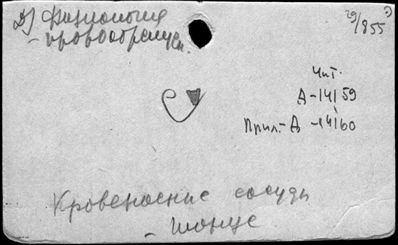 2) Физиология
- кровообращен.
29/855
Чит.
А-14/59
Прил.-А-14/60
Кровеносные сосуды
- тонус